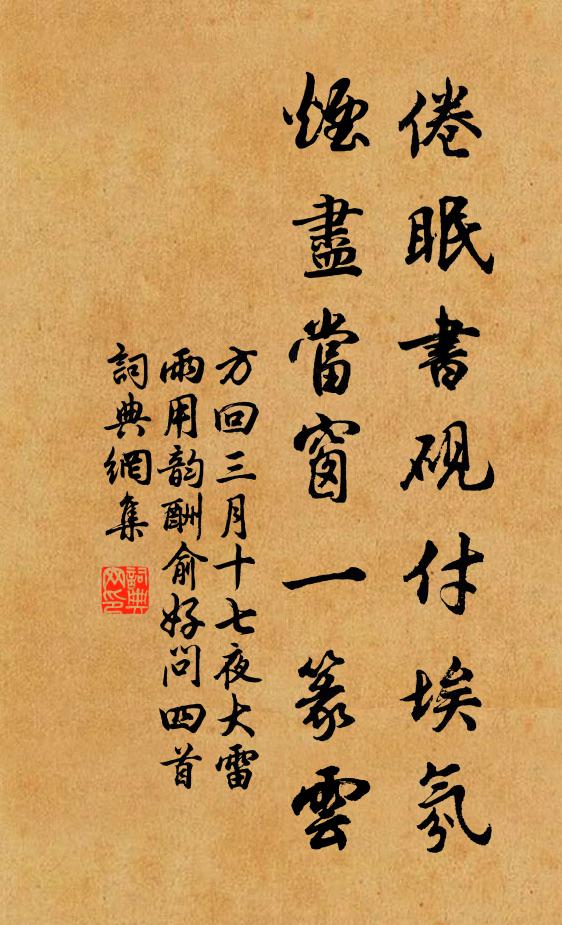 倦眠書硯付埃氛
煙盡當窗一篆雲
方回三月十七夜大雷
雨用韵酬俞好问四首
詞典網集
詞典
网印